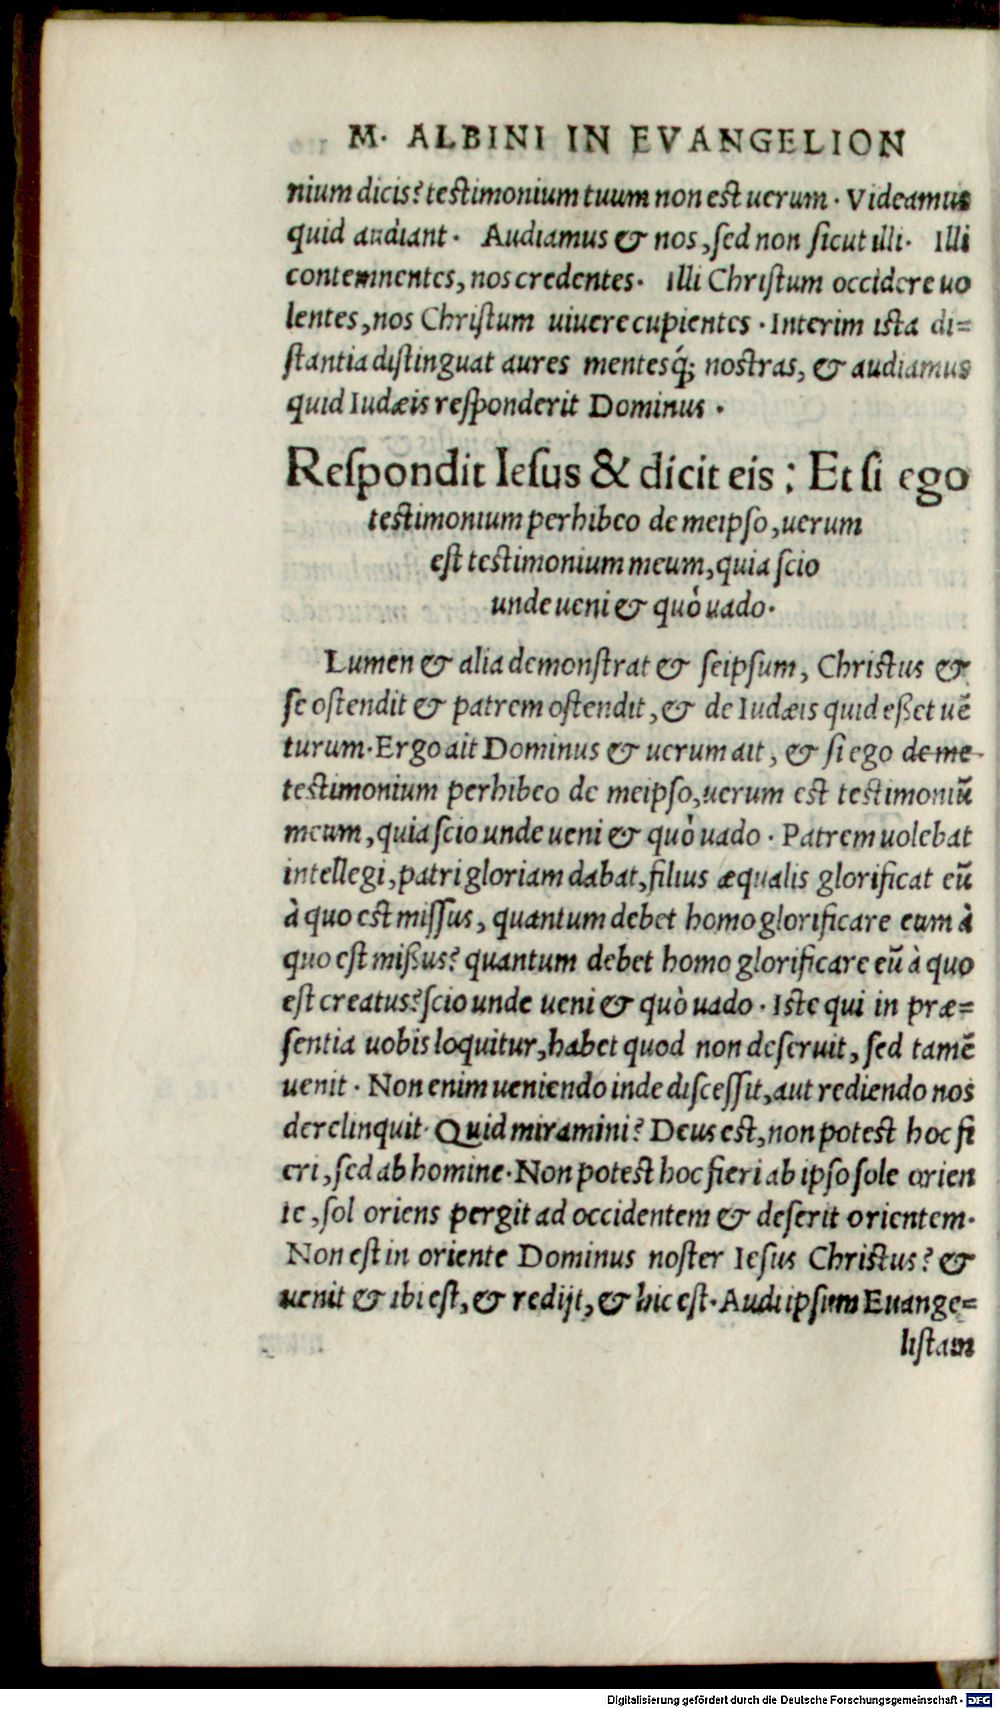 M. ALBINI IN EVANGELION
nium dicis? testimonium tuum non est uerum. Videamus
quid audiant. Audiamus & nos, sed non sicut illi. Illi
contemnentes, nos credentes. Illi Christum occidere uo
lentes, nos Christum uiuere cupientes. Interim ista di=
stantia distinguat aures mentesq́; nostras, & audiamus
quid Iudæis responderit Dominus.
Respondit Iesus & dicit eis: Et si ego
testimonium perhibeo de meipso, uerum
est testimonium meum, quia scio
unde ueni & quò uado.
Lumen & alia demonstrat & seipsum, Christus &
se ostendit & patrem ostendit, & de Iudæis quid eßet uē
turum. Ergo ait Dominus & uerum ait, & si ego de me
testimonium perhibeo de meipso, uerum est testimoniū
meum, quia scio unde ueni & quò uado. Patrem uolebat
intellegi, patri gloriam dabat, filius æqualis glorificat eū
à quo est missus, quantum debet homo glorificare eum à
quo est mißus? quantum debet homo glorificare eū à quo
est creatus? scio unde ueni & quò uado. Iste qui in præ=
sentia uobis loquitur, habet quod non deseruit, sed tamē
uenit. Non enim ueniendo inde discessit, aut rediendo nos
derelinquit. Quid miramini? Deus est, non potest hoc fi
eri, sed ab homine. Non potest hoc fieri ab ipso sole orien
te, sol oriens pergit ad occidentem & deserit orientem.
Non est in oriente Dominus noster Iesus Christus? &
uenit & ibi est, & redijt, & hic est. Audi ipsum Euange=
listam
Digitalisierung gefördert durch die Deutsche Forschungsgemeinschaft - DFG